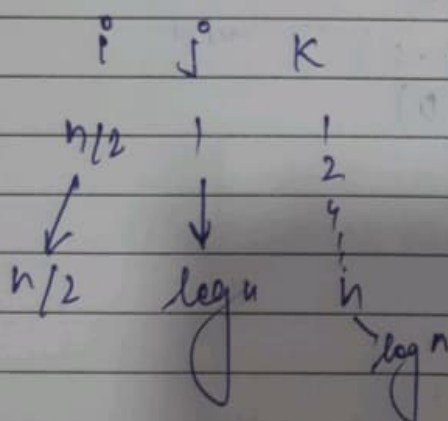 i j K
n/2 1 1
2
4
n/2 log n n
log n